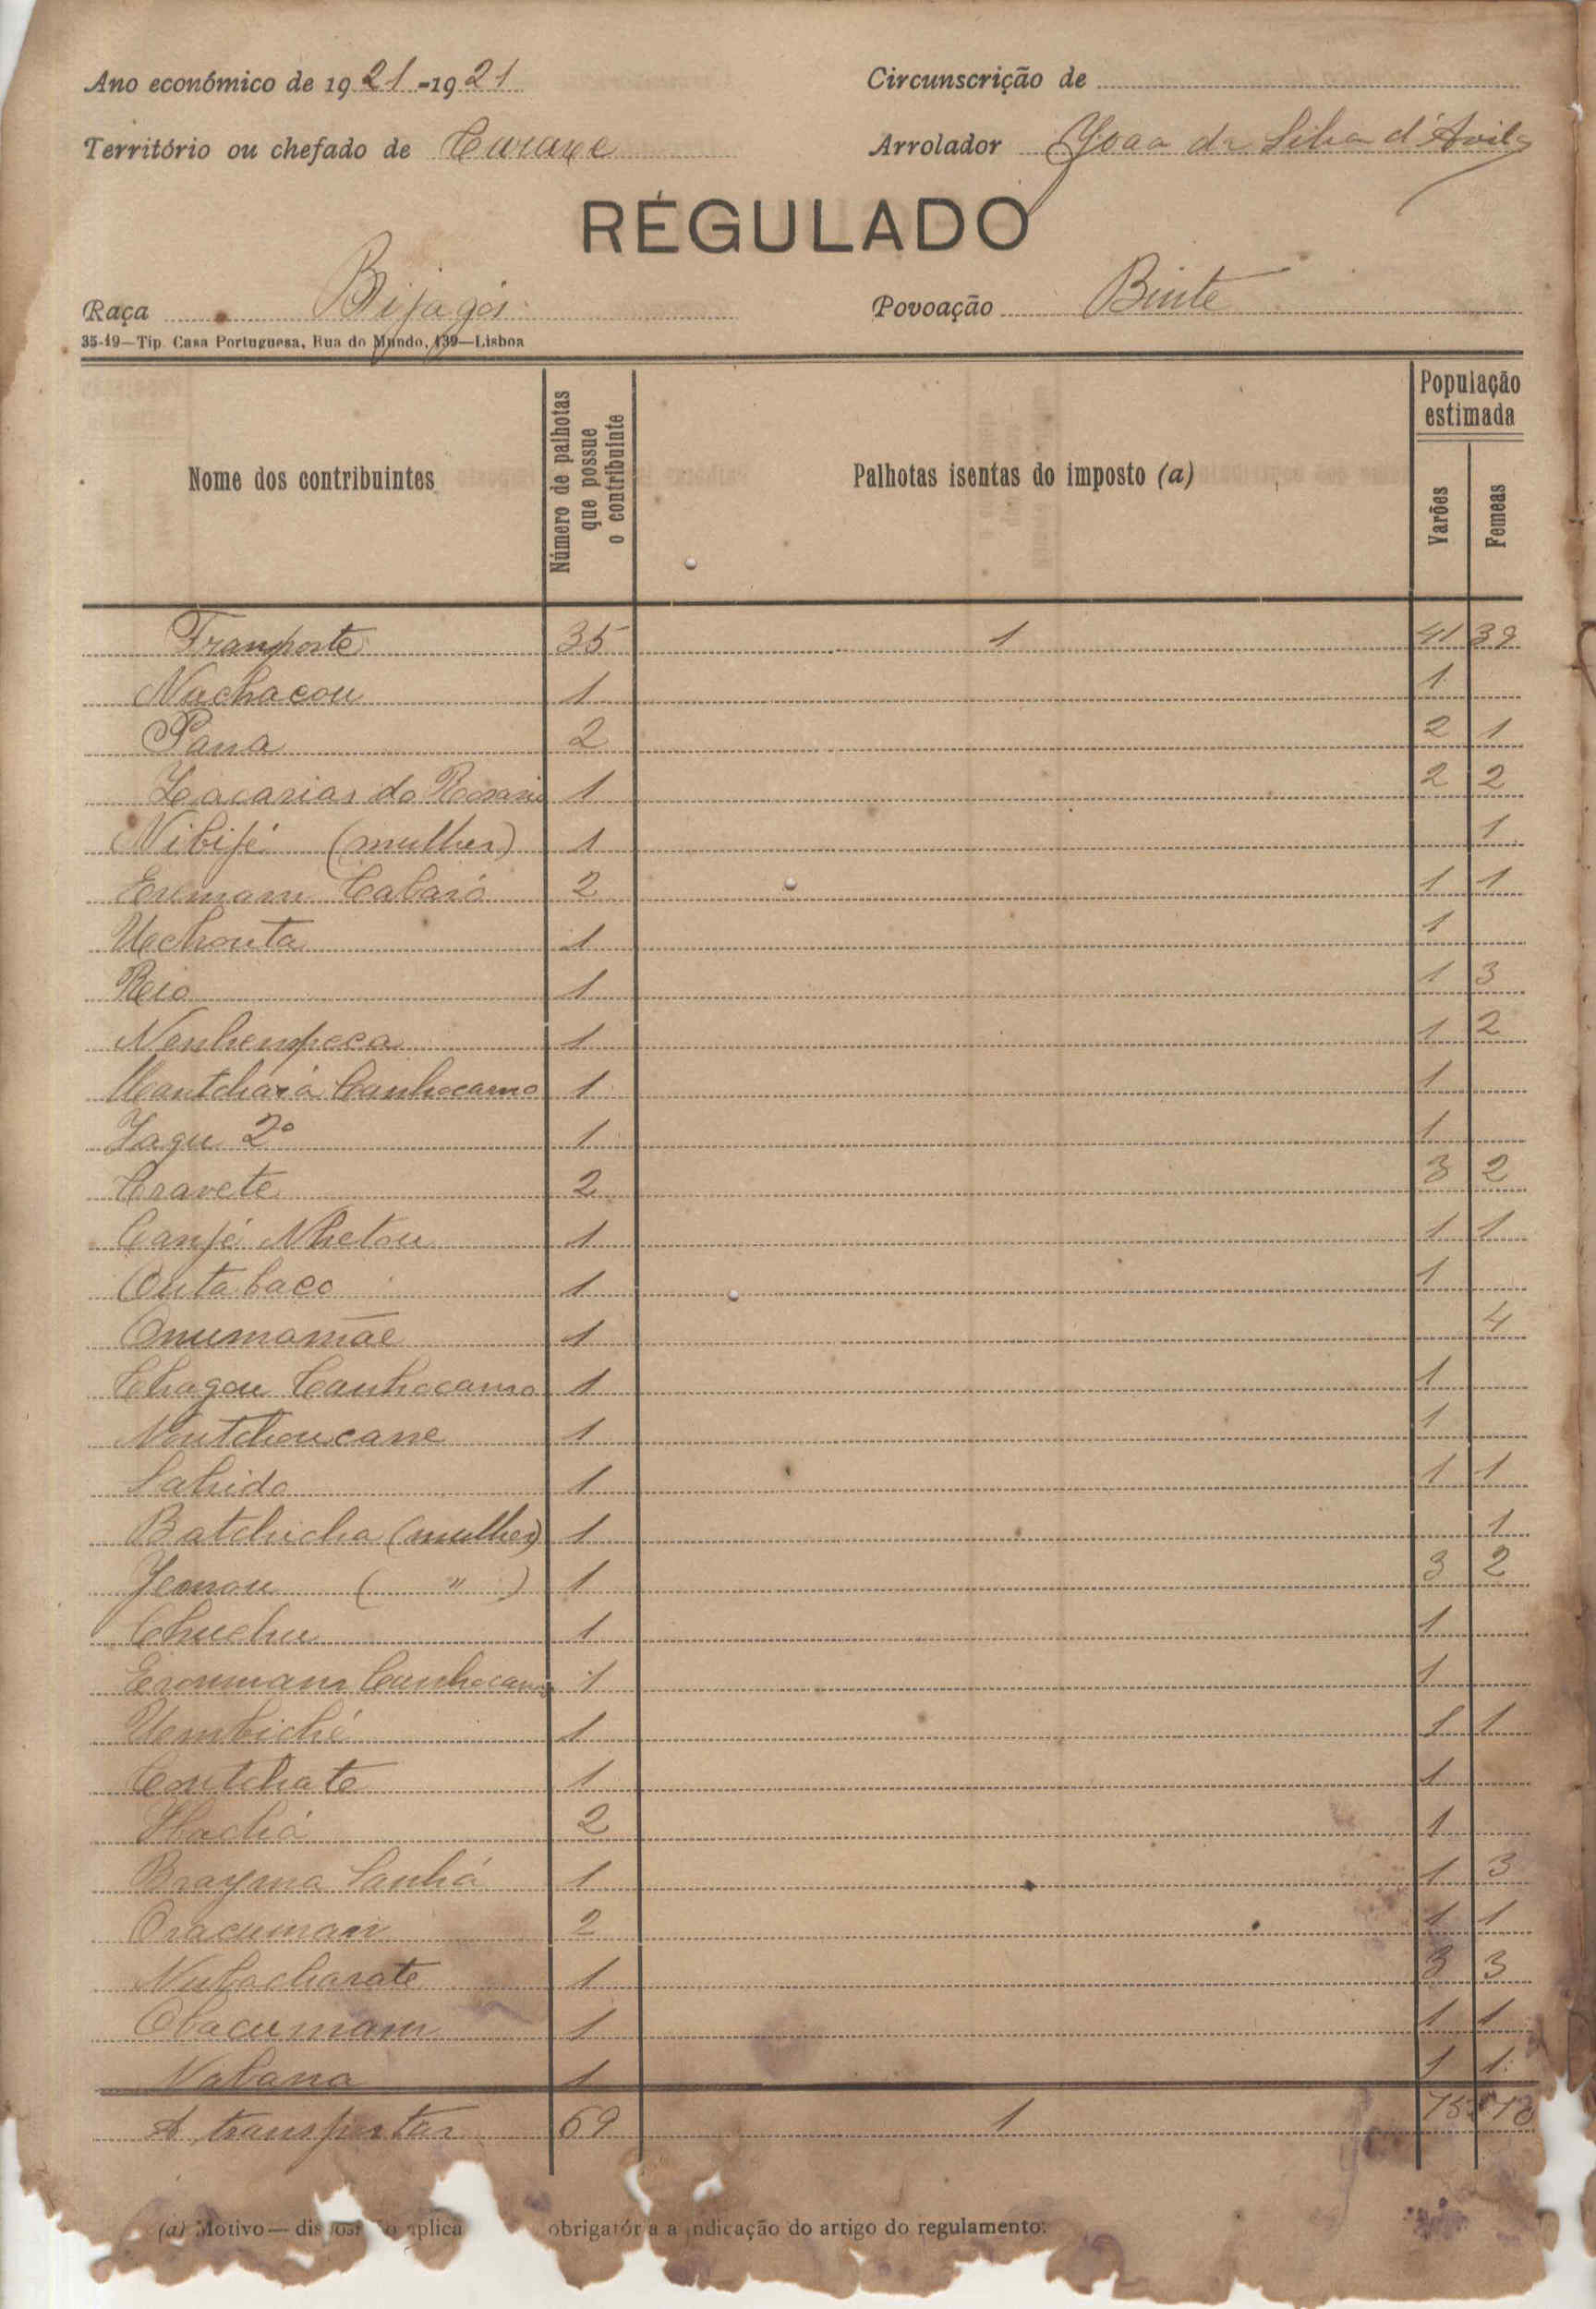 Ano económico de 1921-1921
Circunscrição de
Território ou chefado de Caraxe
Arrolador João da Silva d'Avila
REGULADO
Raça Bijagós
Povoação Binte
35-19—Tip. Casa Portuguesa, Rua do Mundo, 139—Lisboa
Nome dos contribuintes
Número de palhotas que possue o contribuinte
Palhotas isentas do imposto (a)
População estimada
Varões
Femeas
Transporte 35 1 41 39
Nachacou 1 1
Pana 2 2 1
Zacarias do Rosario 1 2 2
Nibijé (mulher) 1 1
Cabaró 2 1 1
Uchouta 1 1
Reio 1 1 3
Nenhempeca 1 1 2
Cantchará Canhocamo 1 1
Jagu 2º 1 1
Cravete 2 3 2
Canjé Nhetou 1 1 1
Outa baco 1 1
Onumamãe 1 4
Chagou Canhocamo 1 1
Noutchoucane 1 1
Sahido 1 1 1
Batchicha (mulher) 1 1
Jeonou ( " ) 1 3 2
Chuchu 1 1
Canhocamo 1 1
Uombiché 1 1 1
Contchate 1 1
2 1
Brayma Sanhá 1 1 3
Oracuman 2 1 1
Nubacharate 1 3 3
Obacumam 1 1 1
Nabana 1 1 1
A transportar 69 1 75
(a) Motivo— obrigatória a indicação do artigo do regulamento.